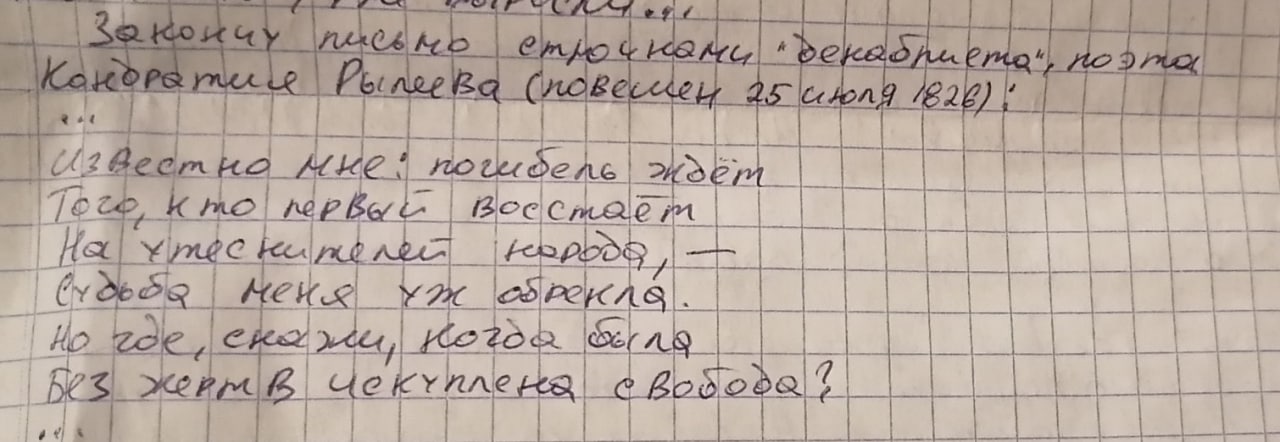 Закончу письмо строчками "декабриста", поэта
Кондратия Рылеева (повешен 25 июля 1826):
...
Известно мне: погибель ждёт
Того, кто первый восстаёт
На утеснителей народа, —
Судьба меня уж обрекла.
Но где, скажи, когда была
Без жертв искуплена свобода?
...